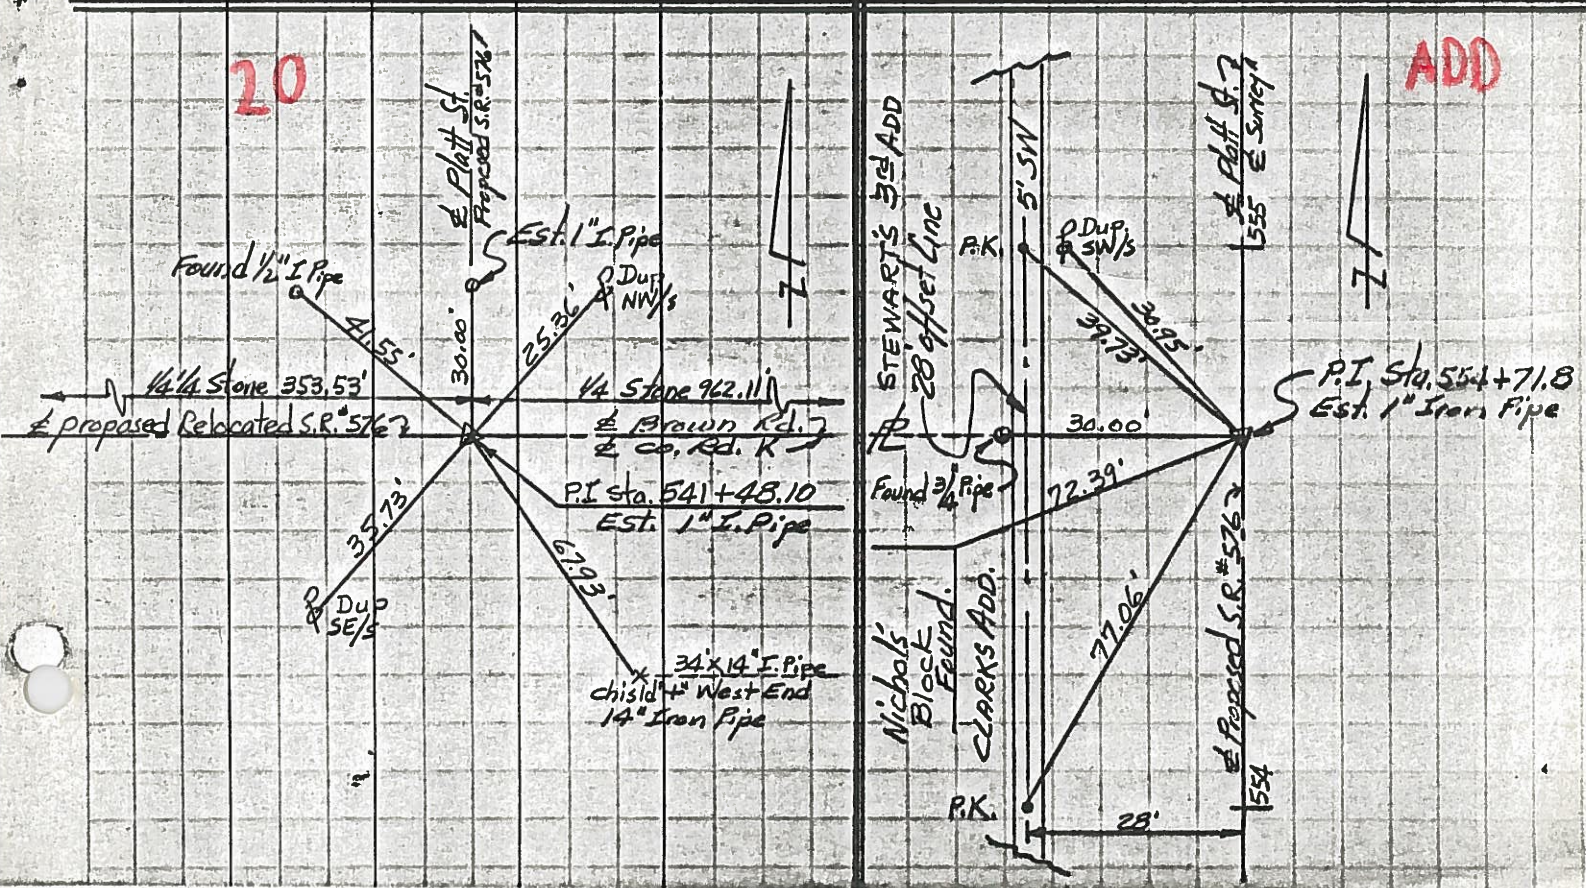 20
℄ Platt St.
Proposed S.R.#576
Est. 1" I. Pipe
Found 1/2" I Pipe
Dup
NW/s
41.55'
30.00'
25.36'
1/4 1/4 Stone 353.53'
1/4 Stone 962.11'
℄ proposed Relocated S.R.#576
℄ Brown Rd.
℄ Co. Rd. K
P.I Sta. 541+48.10
Est. 1" I. Pipe
35.73'
67.93'
Dup
SE/s
34' x 14" I. Pipe
chisld "+" West End
14" Iron Pipe
ADD
STEWART'S 3rd ADD
28' offset Line
5' SW
℄ Platt St.
℄ Survey
555
P.K.
Dup.
SW/s
30.95'
39.73'
P.I. Sta. 554+71.8
Est. 1" Iron Pipe
℄
30.00
Found 3/4" Pipe
72.39'
77.06'
Nichols
Block
Found.
CLARKS ADD.
℄ Proposed S.R.#576
554
P.K.
28'